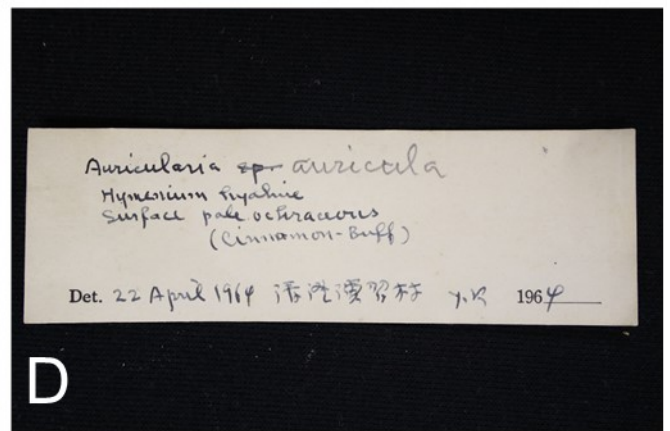 Auricularia sp. auricula
Hymenium hyaline
Surface pale ochraceous
(Cinnamon-Buff)
Det. 22 April 1964 清澄演習林 Y.K 1964
D